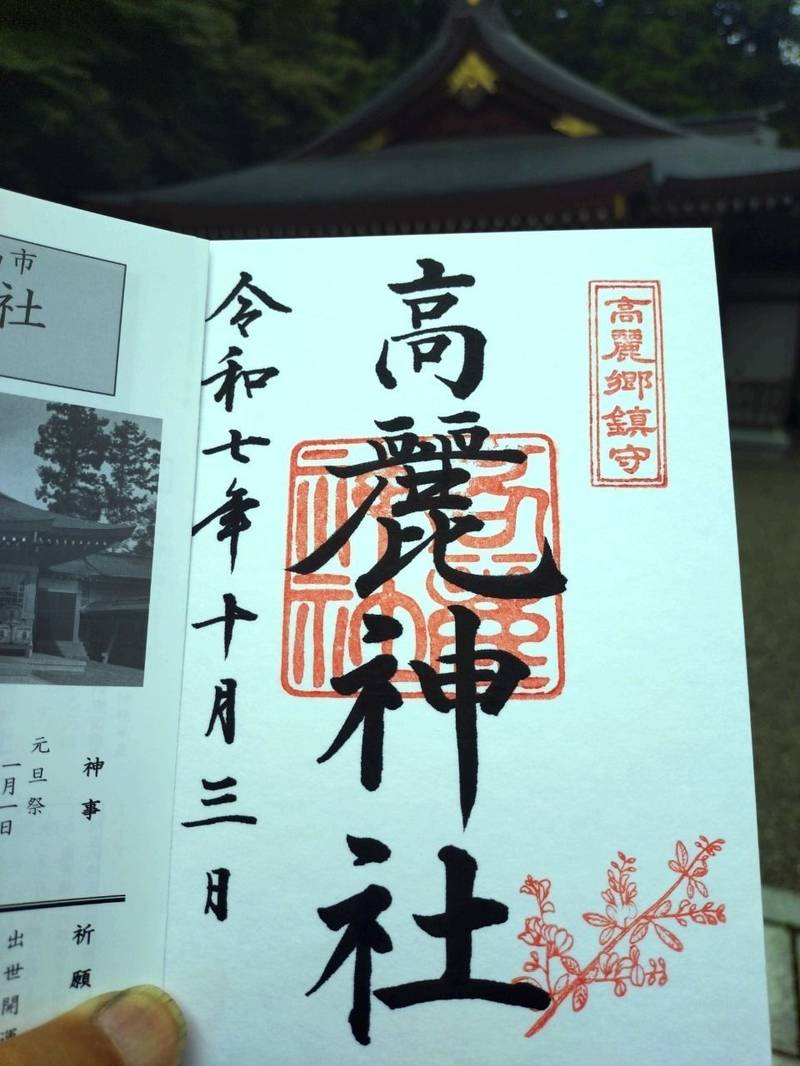 高麗郷鎮守
高麗神社
令和七年十月三日
市
社
神事
元旦祭
一月一日
祈願
出世開運